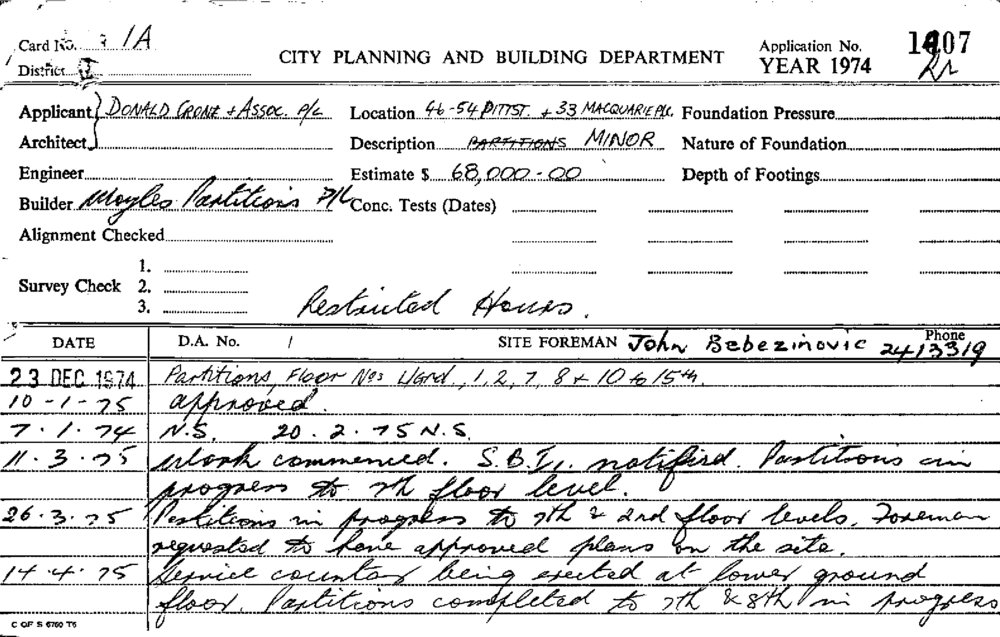 Card No. 1A
District I
CITY PLANNING AND BUILDING DEPARTMENT
Application No.
YEAR 1974
1407
Applicant DONALD CRONE + ASSOC. P/L
Location 46-54 PITT ST. + 33 MACQUARIE PL.
Foundation Pressure
Architect
Description PARTITIONS MINOR
Nature of Foundation
Engineer
Estimate $ 68,000-00
Depth of Footings
Builder Moyles Partitions P/L
Conc. Tests (Dates)
Alignment Checked
Survey Check
1.
2.
3.
Restricted Hours.
DATE
D.A. No. /
SITE FOREMAN John Bebezinovic
Phone
2413319
23 DEC 1974 Partitions, Floor Nos L/Grd, 1, 2, 7, 8 + 10 to 15th.
10-1-75 approved.
7.1.74 N.S. 20.2.75 N.S.
11.3.75 Work commenced. S.B.I. notified. Partitions in
progress to 7th floor level.
26.3.75 Partitions in progress to 7th & 2nd floor levels. Foreman
requested to have approved plans on the site.
14.4.75 Service counter being erected at lower ground
floor. Partitions completed to 7th & 8th in progress
C OF S 6760 T5